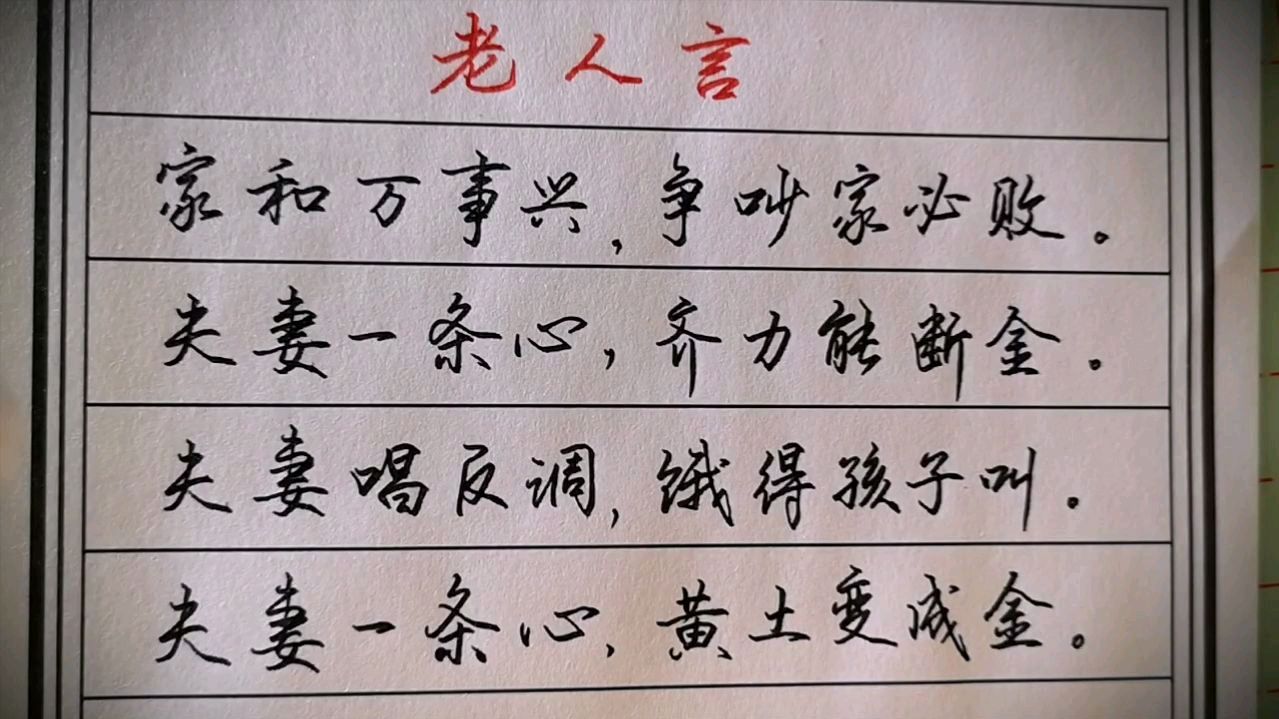 老人言
家和万事兴,争吵家必败。
夫妻一条心,齐力能断金。
夫妻唱反调,饿得孩子叫。
夫妻一条心,黄土变成金。